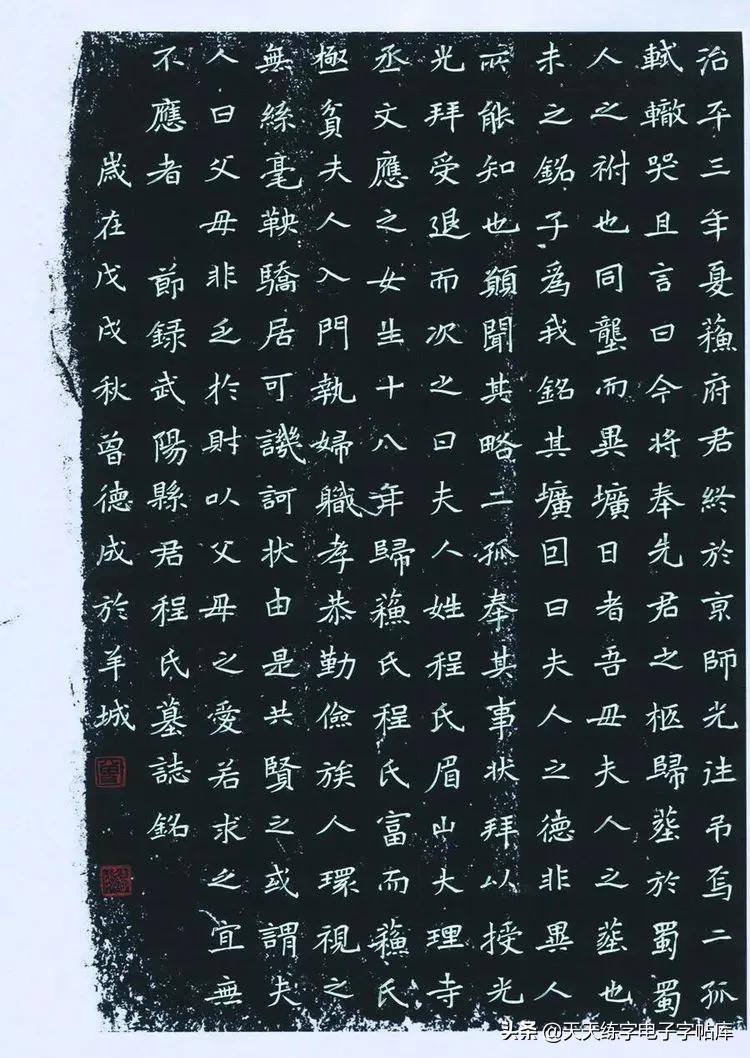 治平三年夏蘓府君終於亰師光往弔焉二孤
軾轍哭且言曰今將奉先君之柩歸塟於蜀蜀
人之祔也同壟而異壙日者吾母夫人之塟也
未之銘子爲我銘其壙回曰夫人之德非異人
所能知也願聞其略二孤奉其事状拜以授光
光拜受退而次之曰夫人姓程氏眉山大理寺
丞文應之女生十八年歸蘓氏程氏富而蘓氏
極貧夫人入門執婦職孝恭勤儉族人環視之
無絲毫鞅驕居可譏訶状由是共賢之或謂夫
人曰父母非乏於財以父母之愛若求之宜無
不應者 節録武陽縣君程氏墓誌銘
嵗在戊戌秋曾德成於羊城
头条 @天天练字电子字帖库